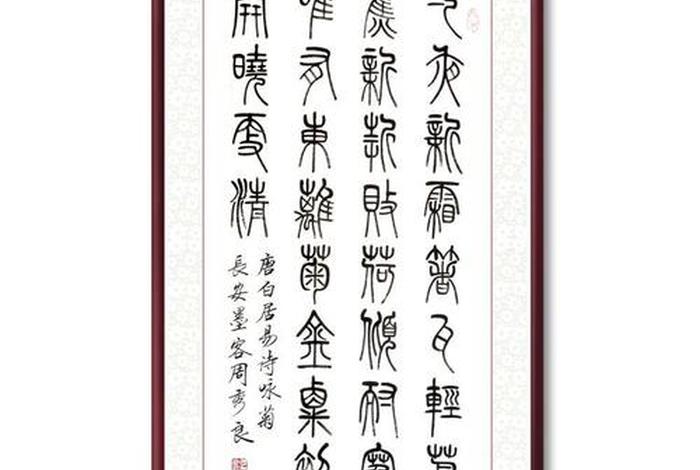 一夜新霜箸瓦輕芭
蕉新折敗荷傾耐寒
唯有東離菊金粟初
開曉更清
唐白居易诗咏菊
長安墨客周秀良